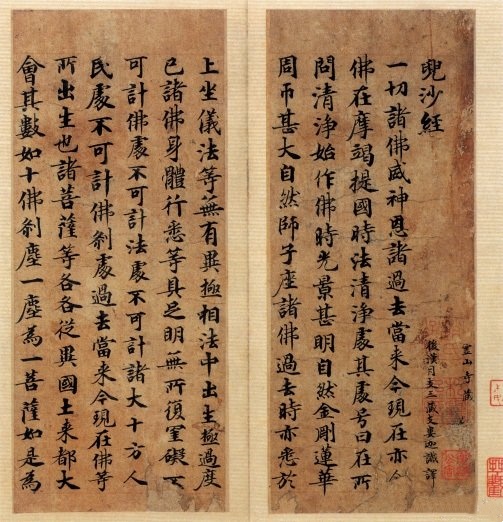 霊山寺藏
兜沙經
後漢月支三藏支婁迦讖譯
一切諸佛威神恩諸過去當来今現在亦尒
佛在摩竭提國時法清淨處其處号曰在所
問清淨始作佛時光景甚明自然金剛蓮華
周帀甚大自然師子座諸佛過去時亦悉於
上坐儀法等無有異極相法中出生極過度
已諸佛身體行悉等具足明無所復罣礙不
可計佛處不可計法處不可計諸大十方人
民處不可計佛剎處過去當来今現在佛等
所出生也諸菩薩等各各從異國土来都大
會其數如十佛剎塵一塵為一菩薩如是為